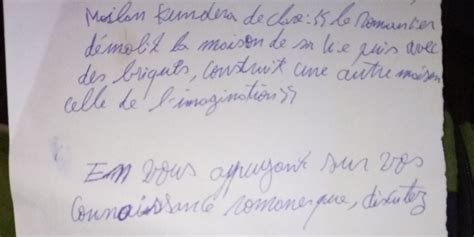 Milan Kundera declare: "Le romancier
démolit la maison de sa vie puis avec
des briques, construit une autre maison
celle de l'imagination"
En vous appuyant sur vos
connaissance romanesque, discutez